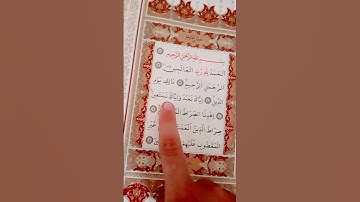 بسم الله الرحمن الرحيم
الحمد لله رب العالمين
الرحمن الرحيم مالك يوم
الدين إياك نعبد وإياك نستعين
اهدنا الصراط
صراط الذين أنعمت غير
المغضوب عليهم